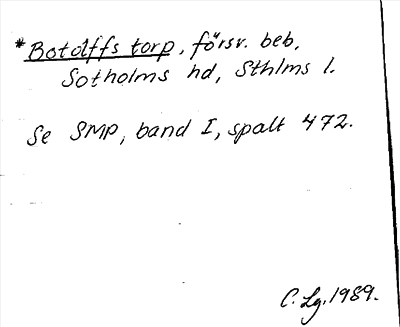 *Botolffs torp, försv. beb.
Sotholms hd, Sthlms l.
Se SMP, band I, spalt 472.
C. Lg. 1989.